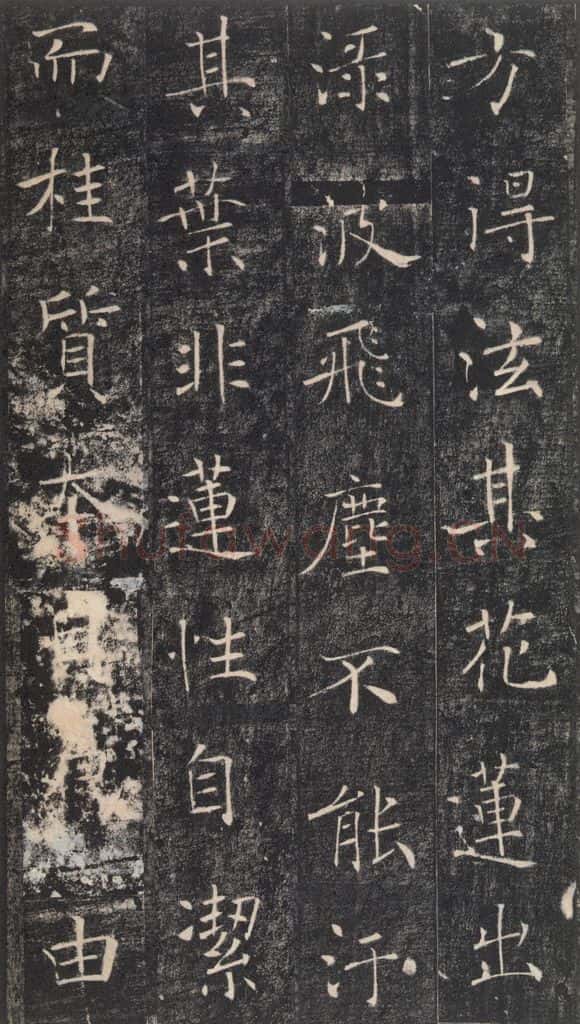 方得泫其花蓮出
渌波飛塵不能汙
其葉非蓮性自潔
而桂質本由
shufawang.CN